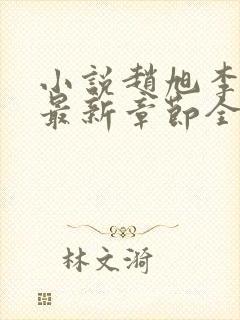 小說趙旭李
最新章節全
林文漪